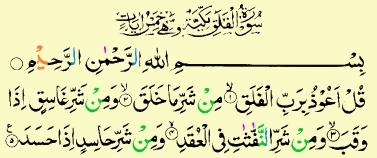 سُورَةُ الْفَلَقِ مَكِّيَّةٌ وَهِيَ خَمْسُ آيَاتٍ
بِسْمِ اللهِ الرَّحْمٰنِ الرَّحِيْمِ ○
قُلْ اَعُوْذُ بِرَبِّ الْفَلَقِ ۙ۱ مِنْ شَرِّ مَا خَلَقَ ۙ۲ وَمِنْ شَرِّ غَاسِقٍ اِذَا
وَقَبَ ۙ۳ وَمِنْ شَرِّ النَّفّٰثٰتِ فِى الْعُقَدِ ۙ۴ وَمِنْ شَرِّ حَاسِدٍ اِذَا حَسَدَ ۵